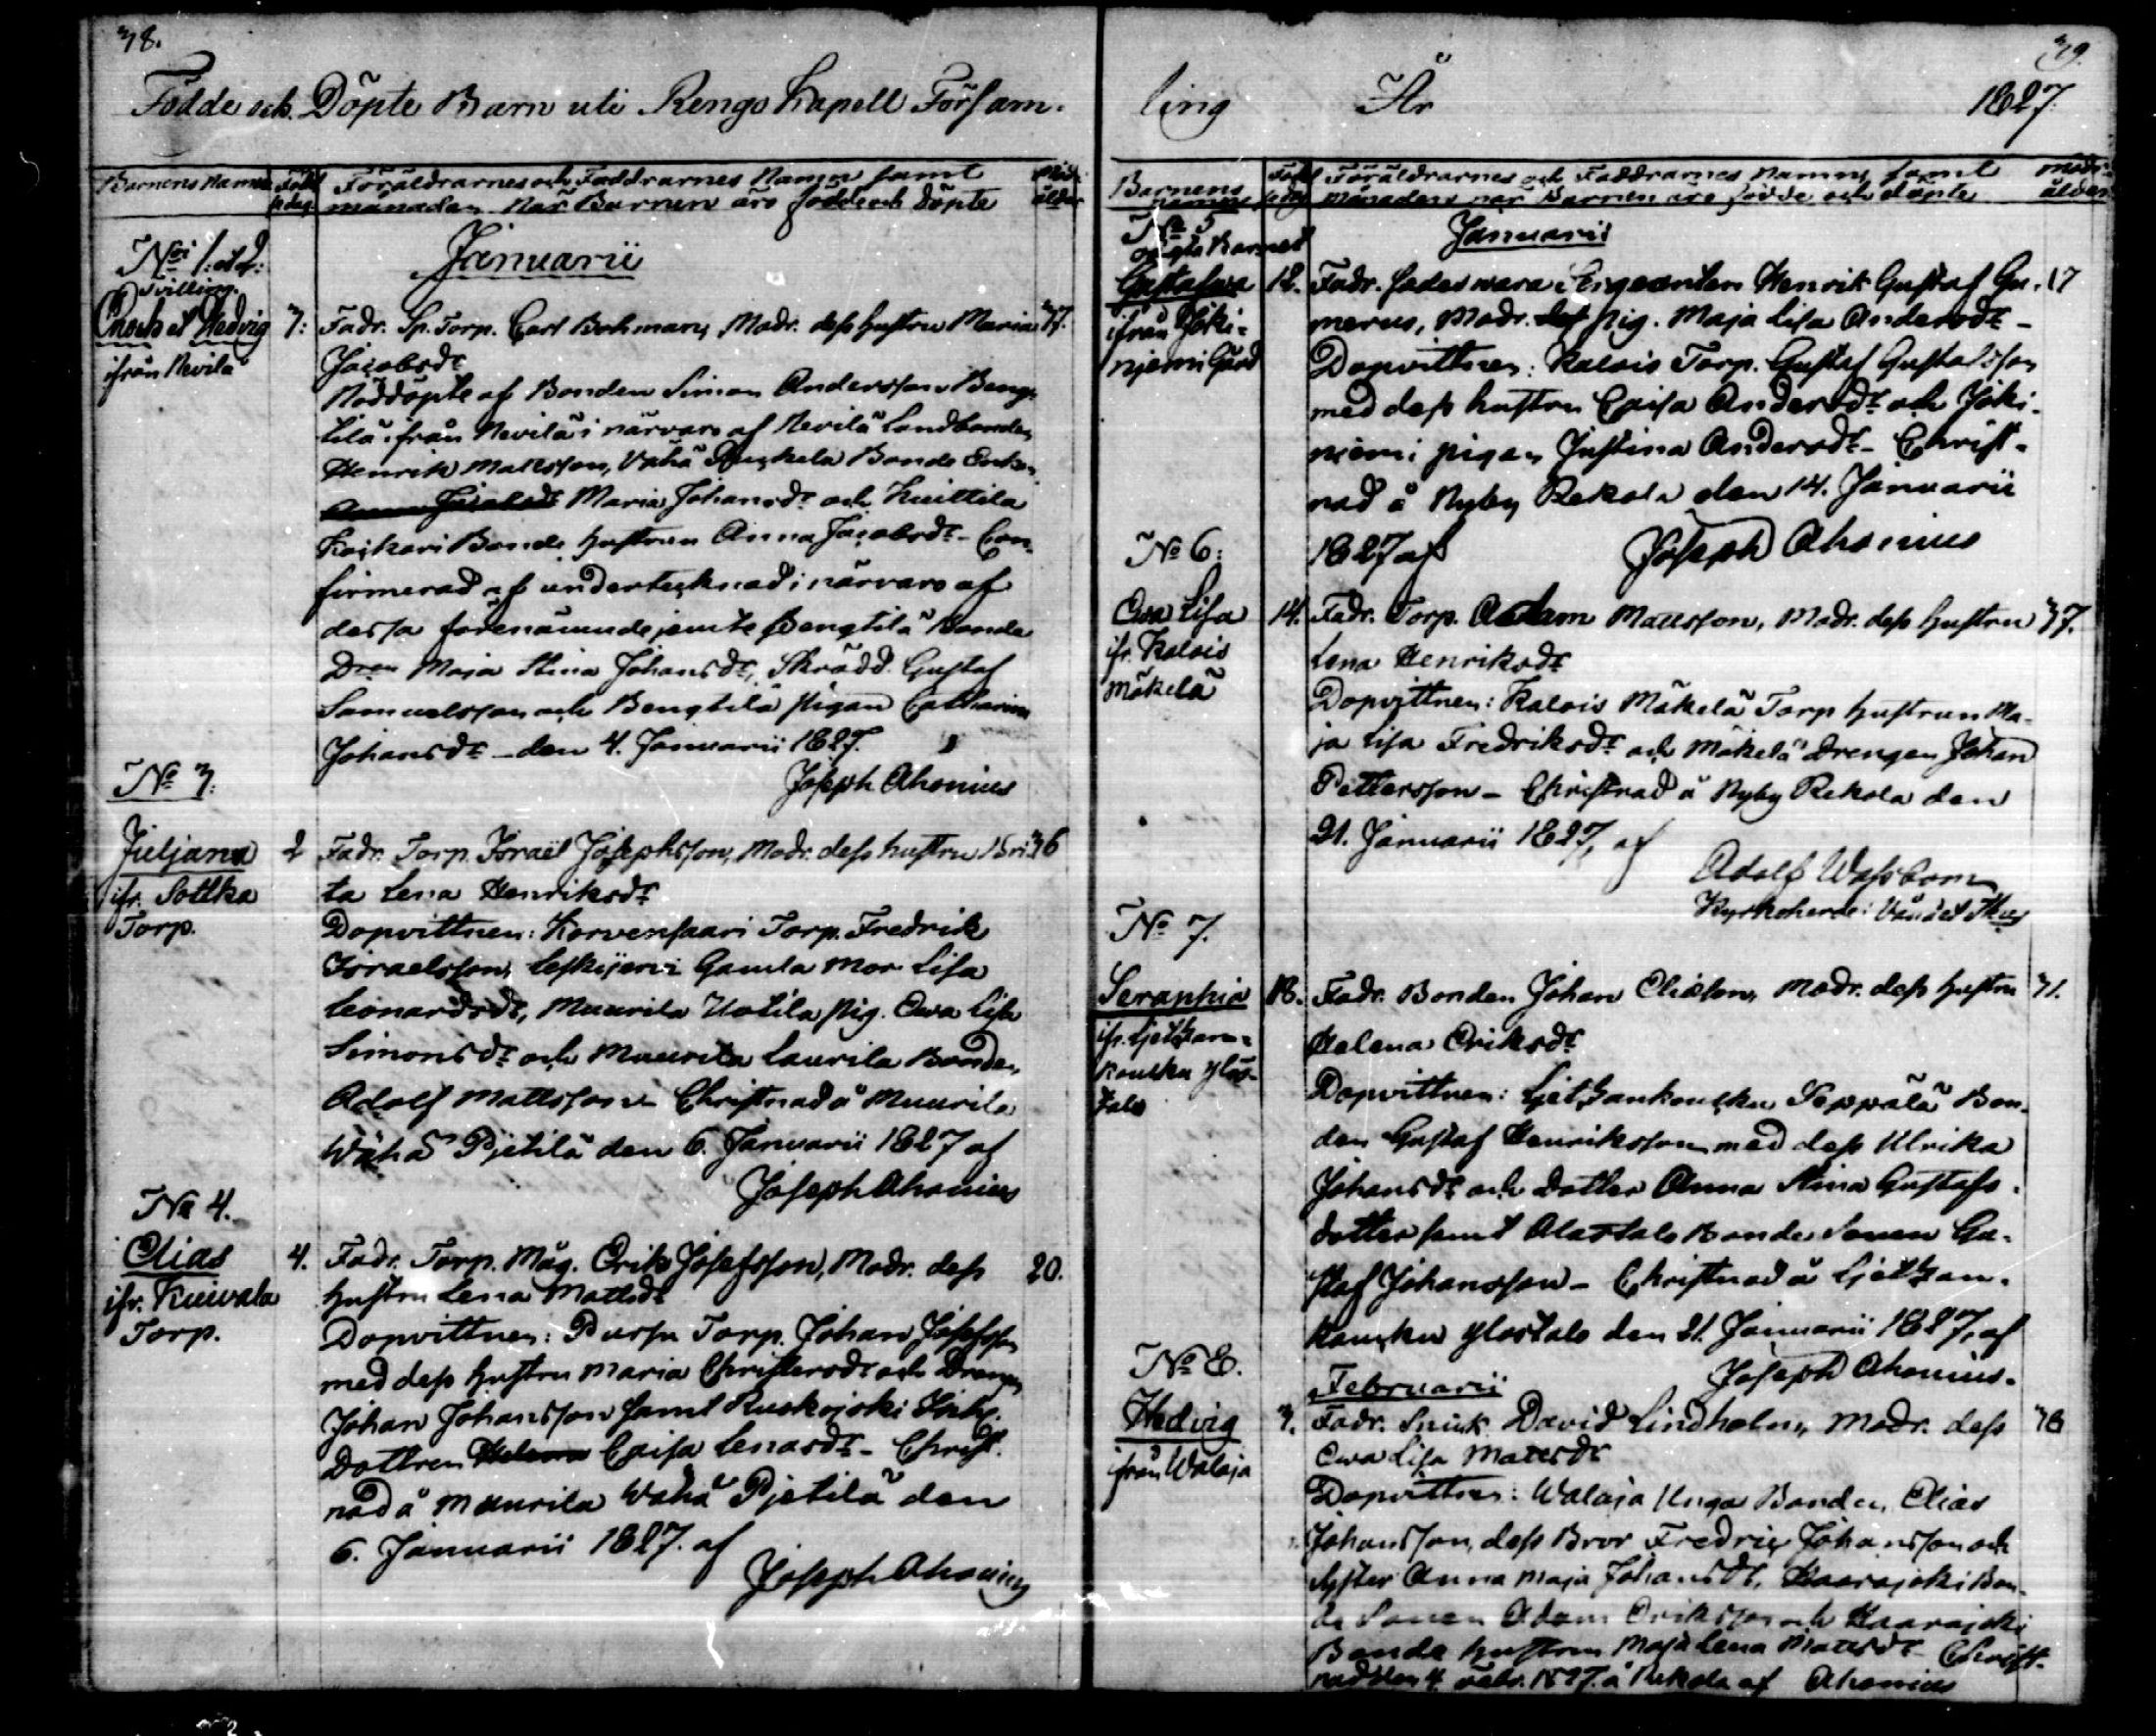 38.
Födde och Döpte Barn uti Rengo Kapell Församling År 1827.
39.
Barnens Namn
Född
Föräldrarnes och Faddrarnes Namn samt
månaden när Barnen äro födde och döpte
ålder
Januarii
No 1. et 2.
Tvilling.
Enoch et Hedvig
ifrån Nevilä
7.
Fadr. Sp. Torp. Carl Bohman, Modr. dess hustru Maria
Jacobsdr
Nöddöpte af Bonden Simon Andersson Beng-
tilä ifrån Nevilä i närvaro af Nevilä Landbonden
Henrik Mattsson, Vähä Bonde
Maria Johansdr och Kuittila
Bonde hustrun Anna Jacobsdr - Con-
firmerad af undertecknad i närvaro af
dessa förenämnde jemte Bengtilä Bonde
Dren Maja Stina Johansdr, Skrädd. Gustaf
Samuelsson och Bengtilä pigan Catharina
Johansdr - den 4. Januarii 1827.
Joseph Ahonius
No 3.
Juljana
ifr. Sottka
Torp.
2
Fadr. Torp. Israël Josephsson, Modr. dess hustru Bri-
36
ta Lena Henriksdr
Dopvittnen: Korvensaari Torp. Fredrik
Israelsson, Leskijervi Gamla mor Lisa
Leonardsdr, Muurila Uotila pig. Ewa Lisa
Simonsdr och Muurila Laurila Bonden
Adolf Mattsson - Christnad å Muurila
Wähä Pjetilä den 6. Januarii 1827 af
Joseph Ahonius
No 4.
Elias
ifr. Kuivala
Torp.
4.
Fadr. Torp. Måg. Erik Josefsson, Modr. dess
20.
hustru Lena Mattsdr
Dopvittnen: Pursu Torp. Johan Josefsson
med dess hustru Maria Christersdr och Drengen
Johan Johansson samt Ruskojoki
Dottren Helena Caisa Lenardsdr - Christ-
nad å Muurila Wähä Pjetilä den
6. Januarii 1827. af
Joseph Ahonius
Barnens
namn
Föräldrarnes och Faddrarnes Namn, samt
månaden när Barnen äre födde och döpte
Modr.
ålder
Januarii
No 5
oägta Barnet
Gustafwa
ifrån Joki-
njemi Gård
12.
Fadr. sädes wara Sergeanten Henrik Gustaf Gu-
17
merus, Modr. pig. Maja Lisa Andersdr -
Dopvittnen: Kalois Torp. Gustaf Gustafsson
med dess hustru Caisa Andersdr och Joki-
niemi pigan Justina Andersdr - Christ-
nad å Nyby Rekola den 14. Januarii
1827 af
Joseph Ahonius
No 6.
Ewa Lisa
ifr. Kalois
Mäkelä
14.
Fadr. Torp. Adam Mattsson, Modr. dess hustru
37.
Lena Henriksdr
Dopvittnen: Kalois Mäkelä Torp hustrun Ma-
ja Lisa Fredriksdr och Mäkelä Drengen Johan
Pettersson - Christnad å Nyby Rekola den
21. Januarii 1827, af
Adolf Wassbom
Kyrkoherde i
No 7.
Seraphia
18.
Fadr. Bonden Johan Eliasson, Modr. dess hustru
31.
Helena Eriksdr
Dopvittnen: Seppälä Bon-
den Gustaf Henriksson med dess Ulrika
Johansdr och dotter Anna Stina Gustafs-
dotter samt Alastalo Bonde Sonen Gu-
staf Johansson - Christnad å
Ylöstalo den 21. Januarii 1827, af
Joseph Ahonius.
Februarii
No 8.
Hedvig
ifrån Walaja
3.
Fadr. Snick. David Lindholm, Modr. dess
38
Ewa Lisa Mattsdr
Dopvittnen: Walaja Unga Bonden, Elias
Johansson, dess Bror Fredric Johansson och
Syster Anna Maja Johansdr, Haarajoki Bon-
de Sonen Adam Eriksson och Haarajoki
Bonde hustrun Maja Lena Mattsdr Christ-
nad den 4. Febr. 1827. å Rekola af Ahonius